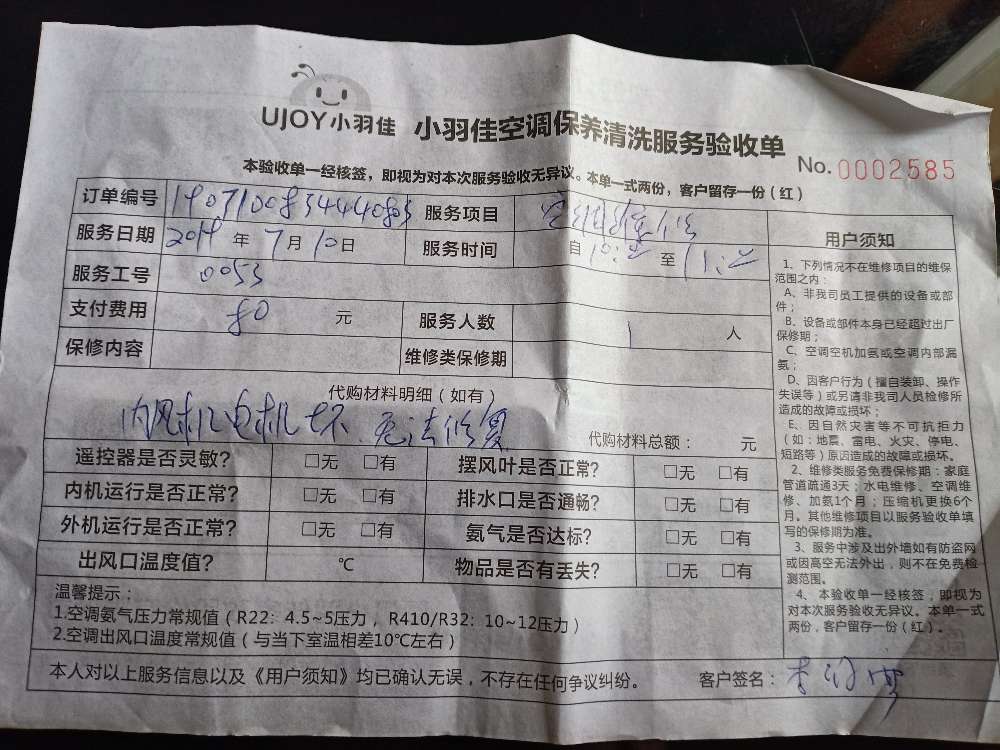 UJOY小羽佳 小羽佳空调保养清洗服务验收单
No. 0002585
本验收单一经核签，即视为对本次服务验收无异议。本单一式两份，客户留存一份（红）
订单编号 服务项目
服务日期 2019 年 7 月 10 日 服务时间 自 10: 至 11:
服务工号 0053
支付费用 80 元 服务人数 1 人
保修内容 维修类保修期
代购材料明细（如有）
内风机电机坏 无法修复
代购材料总额： 元
遥控器是否灵敏? □无 □有 摆风叶是否正常? □无 □有
内机运行是否正常? □无 □有 排水口是否通畅? □无 □有
外机运行是否正常? □无 □有 氨气是否达标? □无 □有
出风口温度值? ℃ 物品是否有丢失? □无 □有
温馨提示：
1.空调氨气压力常规值（R22：4.5~5压力，R410/R32：10~12压力）
2.空调出风口温度常规值（与当下室温相差10℃左右）
本人对以上服务信息以及《用户须知》均已确认无误，不存在任何争议纠纷。 客户签名：
用户须知
1、下列情况不在维修项目的维保
范围之内：
A、非我司员工提供的设备或部
件；
B、设备或部件本身已经超过出厂
保修期；
C、空调空机加氨或空调内部漏
氨；
D、因客户行为（擅自装卸、操作
失误等）或另请非我司人员检修所
造成的故障或损坏；
E、因自然灾害等不可抗拒力
（如：地震、雷电、火灾、停电、
短路等）原因造成的故障或损坏。
2、维修类服务免费保修期：家庭
管道疏通3天；水电维修、空调维
修、加氨1个月；压缩机更换6个
月。其他维修项目以服务验收单填
写的保修期为准。
3、服务中涉及出外墙如有防盗网
或因高空无法外出，则不在免费检
测范围。
4、本验收单一经核签，即视为
对本次服务验收无异议。本单一式
两份，客户留存一份（红）。